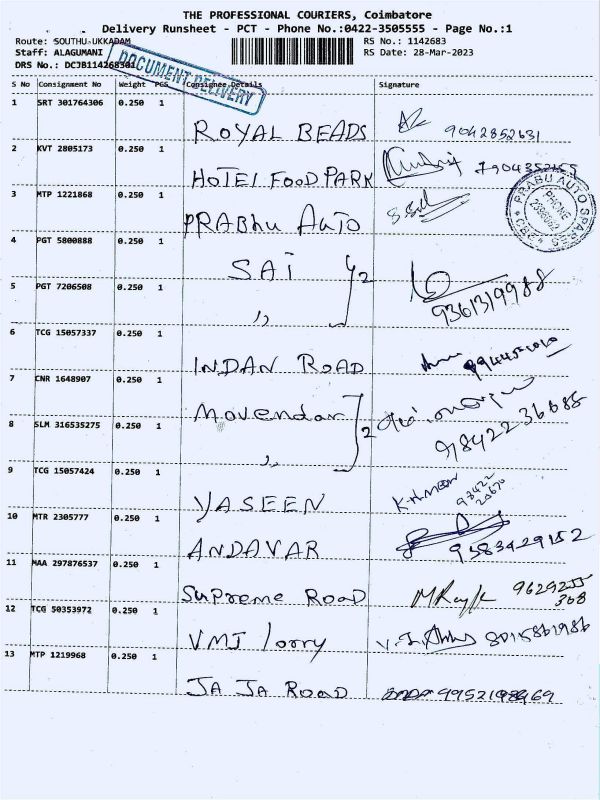 THE PROFESSIONAL COURIERS, Coimbatore
Delivery Runsheet - PCT - Phone No.:0422-3505555 - Page No.:1
Route: SOUTHU-UKKADAM
RS No.: 1142683
Staff: ALAGUMANI
RS Date: 28-Mar-2023
DRS No.: DCJB114268301
DOCUMENT DELIVERY
S No Consignment No Weight PCS Consignee Details Signature
1 SRT 301764306 0.250 1
ROYAL BEADS 9042852631
2 KVT 2805173 0.250 1
HOTEL FOOD PARK
PRABU AUTO SPARES
PHONE
CBE
3 MTP 1221868 0.250 1
PRABHU AUTO
4 PGT 5800888 0.250 1
SAI } 2
5 PGT 7206508 0.250 1
,, 9361319988
6 TCG 15057337 0.250 1
INDAN ROAD
7 CNR 1648907 0.250 1
Movendar } 2
8 SLM 316535275 0.250 1
,, 9842236688
9 TCG 15057424 0.250 1
YASEEN
10 MTR 2305777 0.250 1
ANDAVAR
11 MAA 297876537 0.250 1
Supreme Road 9629255
368
12 TCG 50353972 0.250 1
VMJ lorry
13 MTP 1219968 0.250 1
JA JA ROAD